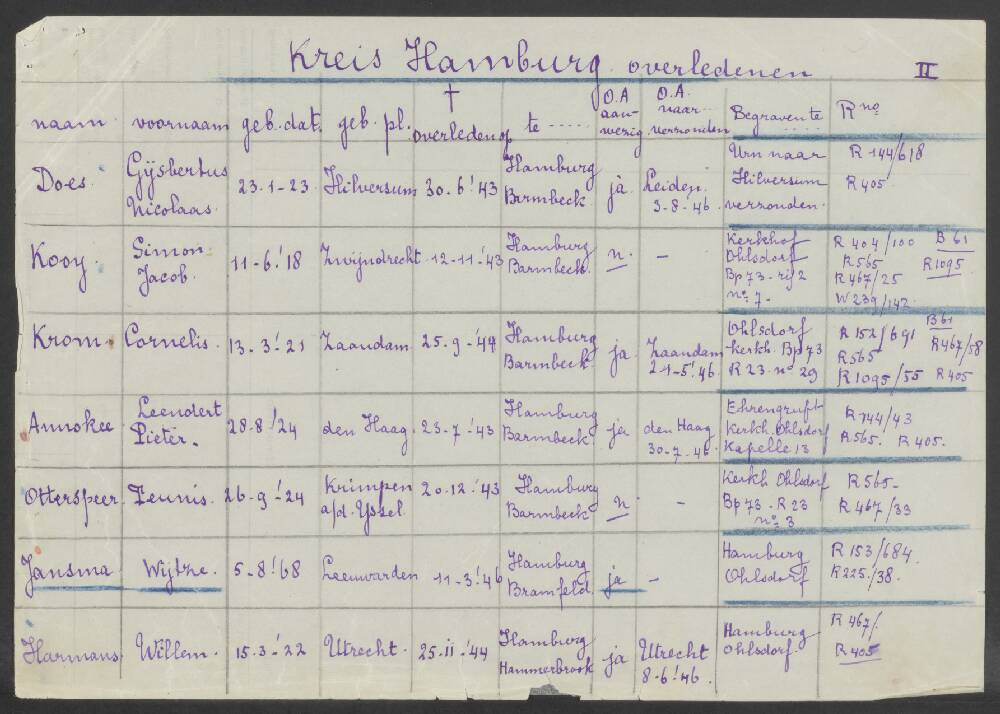 Kreis Hamburg overledenen II
naam voornaam geb. dat. geb. pl. † overleden op te ..... O.A aanwezig O.A. naar verzonden Begraven te R no
Does Gijsbertus Nicolaas. 23.1-23 Hilversum 30.6.'43 Hamburg Barmbeck ja Leiden 3-8-46. Urn naar Hilversum verzonden. R 144/618 R 405
Kooy Simon Jacob. 11-6.'18 Zwijndrecht 12-11-'43 Hamburg Barmbeck n. - Kerkhof Ohlsdorf Bp 73 - rij 2 no 7 - R 404/100 R 565 R 467/25 W 239/142 B 61 R 1095
Krom. Cornelis. 13.3.'21 Zaandam 25.9-'44 Hamburg Barmbeck ja Zaandam 21-5'46. Ohlsdorf Kerkh. Bp 73 R 23. no 29 R 152/691 R 565 R 1095/55 B 61 R 467/58 R 405
Annokee Leendert Pieter. 28-8'24 den Haag. 23-7.'43 Hamburg Barmbeck. ja den Haag 30-7-46 Ehrengruft Kerkh. Ohlsdorf Kapelle 13 R 144/43 R 565. R 405.
Otterspeer. Teunis. 26-9-'24 Krimpen a/d. Yssel. 20.12.'43 Hamburg Barmbeck n - Kerkh Ohlsdorf Bp 73 - R 23 no 3 R 565- R 467/33
Jansma Wytze. 5-8'68 Leeuwarden 11-3.'46 Hamburg Bramfeld. ja - Hamburg Ohlsdorf R 153/684. R 225./38.
Harmans. Willem. 15.3-'22 Utrecht. 25.11-'44 Hamburg Hammerbrook ja Utrecht 8-6.'46. Hamburg Ohlsdorf. R 467/. R 405